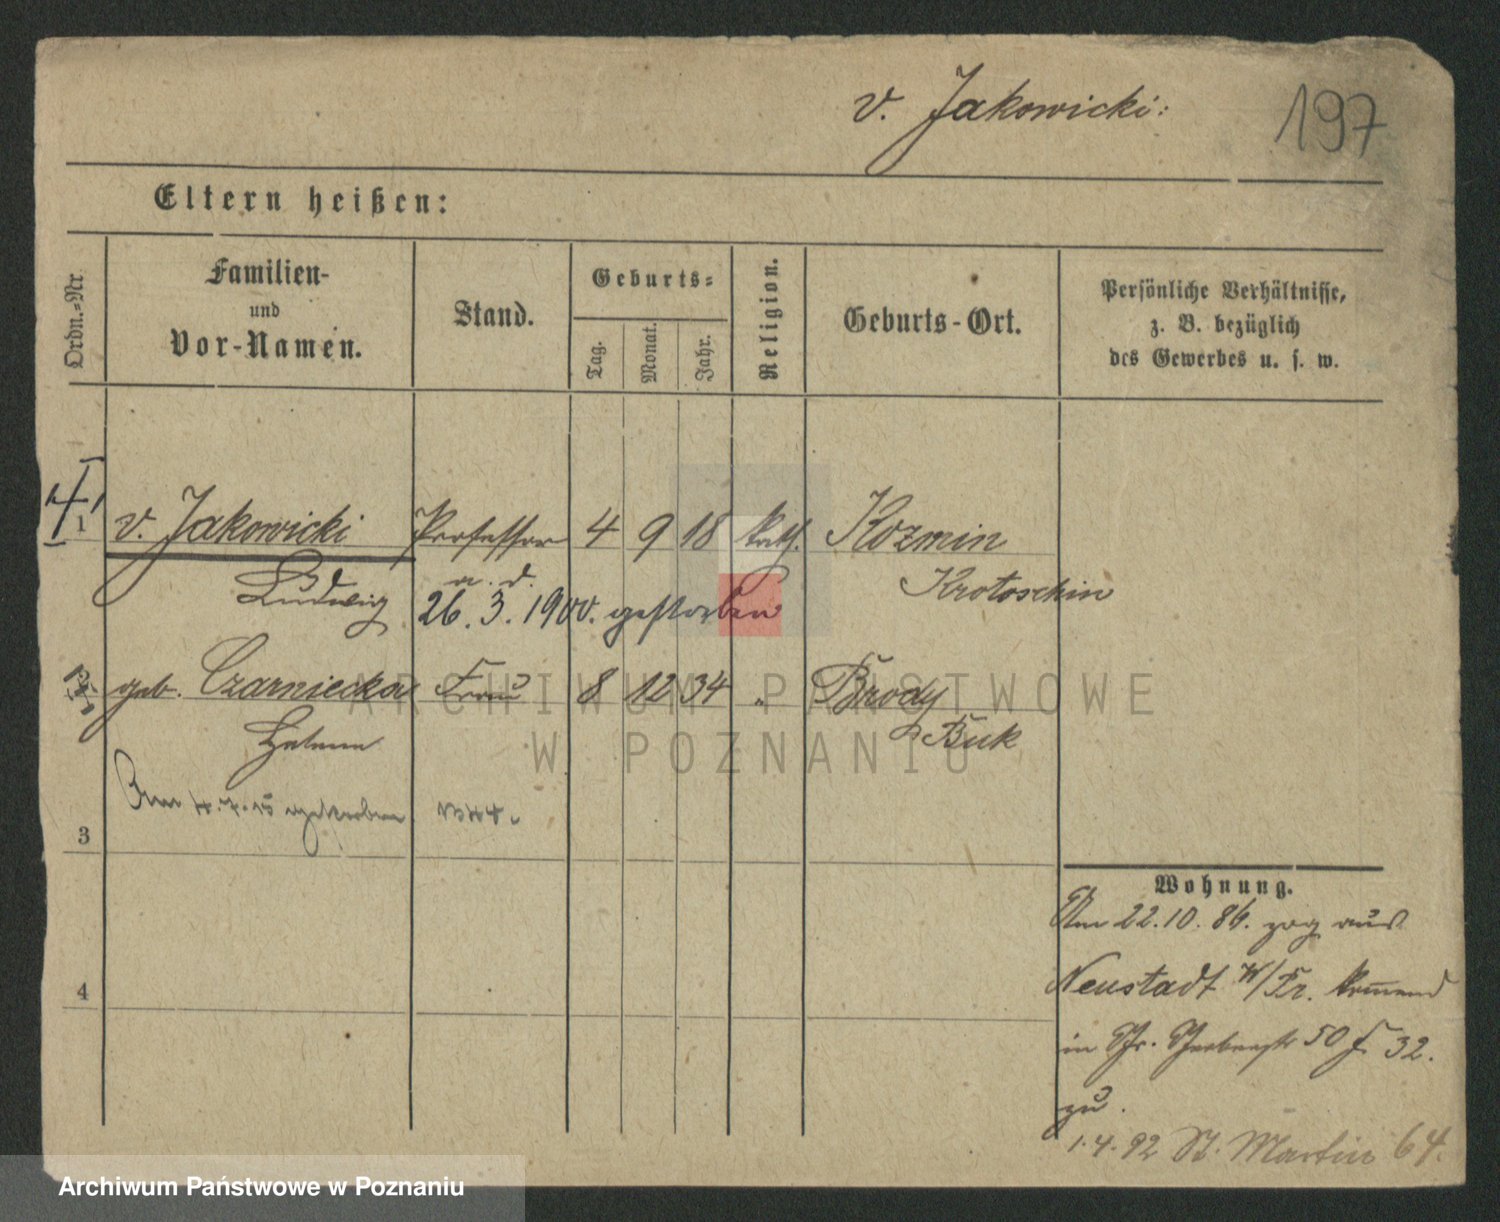 v. Jakowicki:
197
Eltern heißen:
Ordn.-Nr.
Familien-
und
Vor-Namen.
Stand.
Geburts-
Tag.
Monat.
Jahr.
Religion.
Geburts-Ort.
Persönliche Verhältnisse,
z. B. bezüglich
des Gewerbes u. s. w.
1 v. Jakowicki Professor 4 9 18 kath. Kozmin
Ludwig a. d. Krotoschin
26. 3. 1900. gestorben
geb. Czarniecka Frau 8 12 34 " Brody
Helene Buk
Am 4.7.15 gestorben
3
4
Wohnung.
Am 22.10.86. zog aus
Neustadt W/Pr. kommend
in 50 32.
zu.
1.4.92 St. Martin 64.
ARCHIWUM PAŃSTWOWE
W POZNANIU
Archiwum Państwowe w Poznaniu